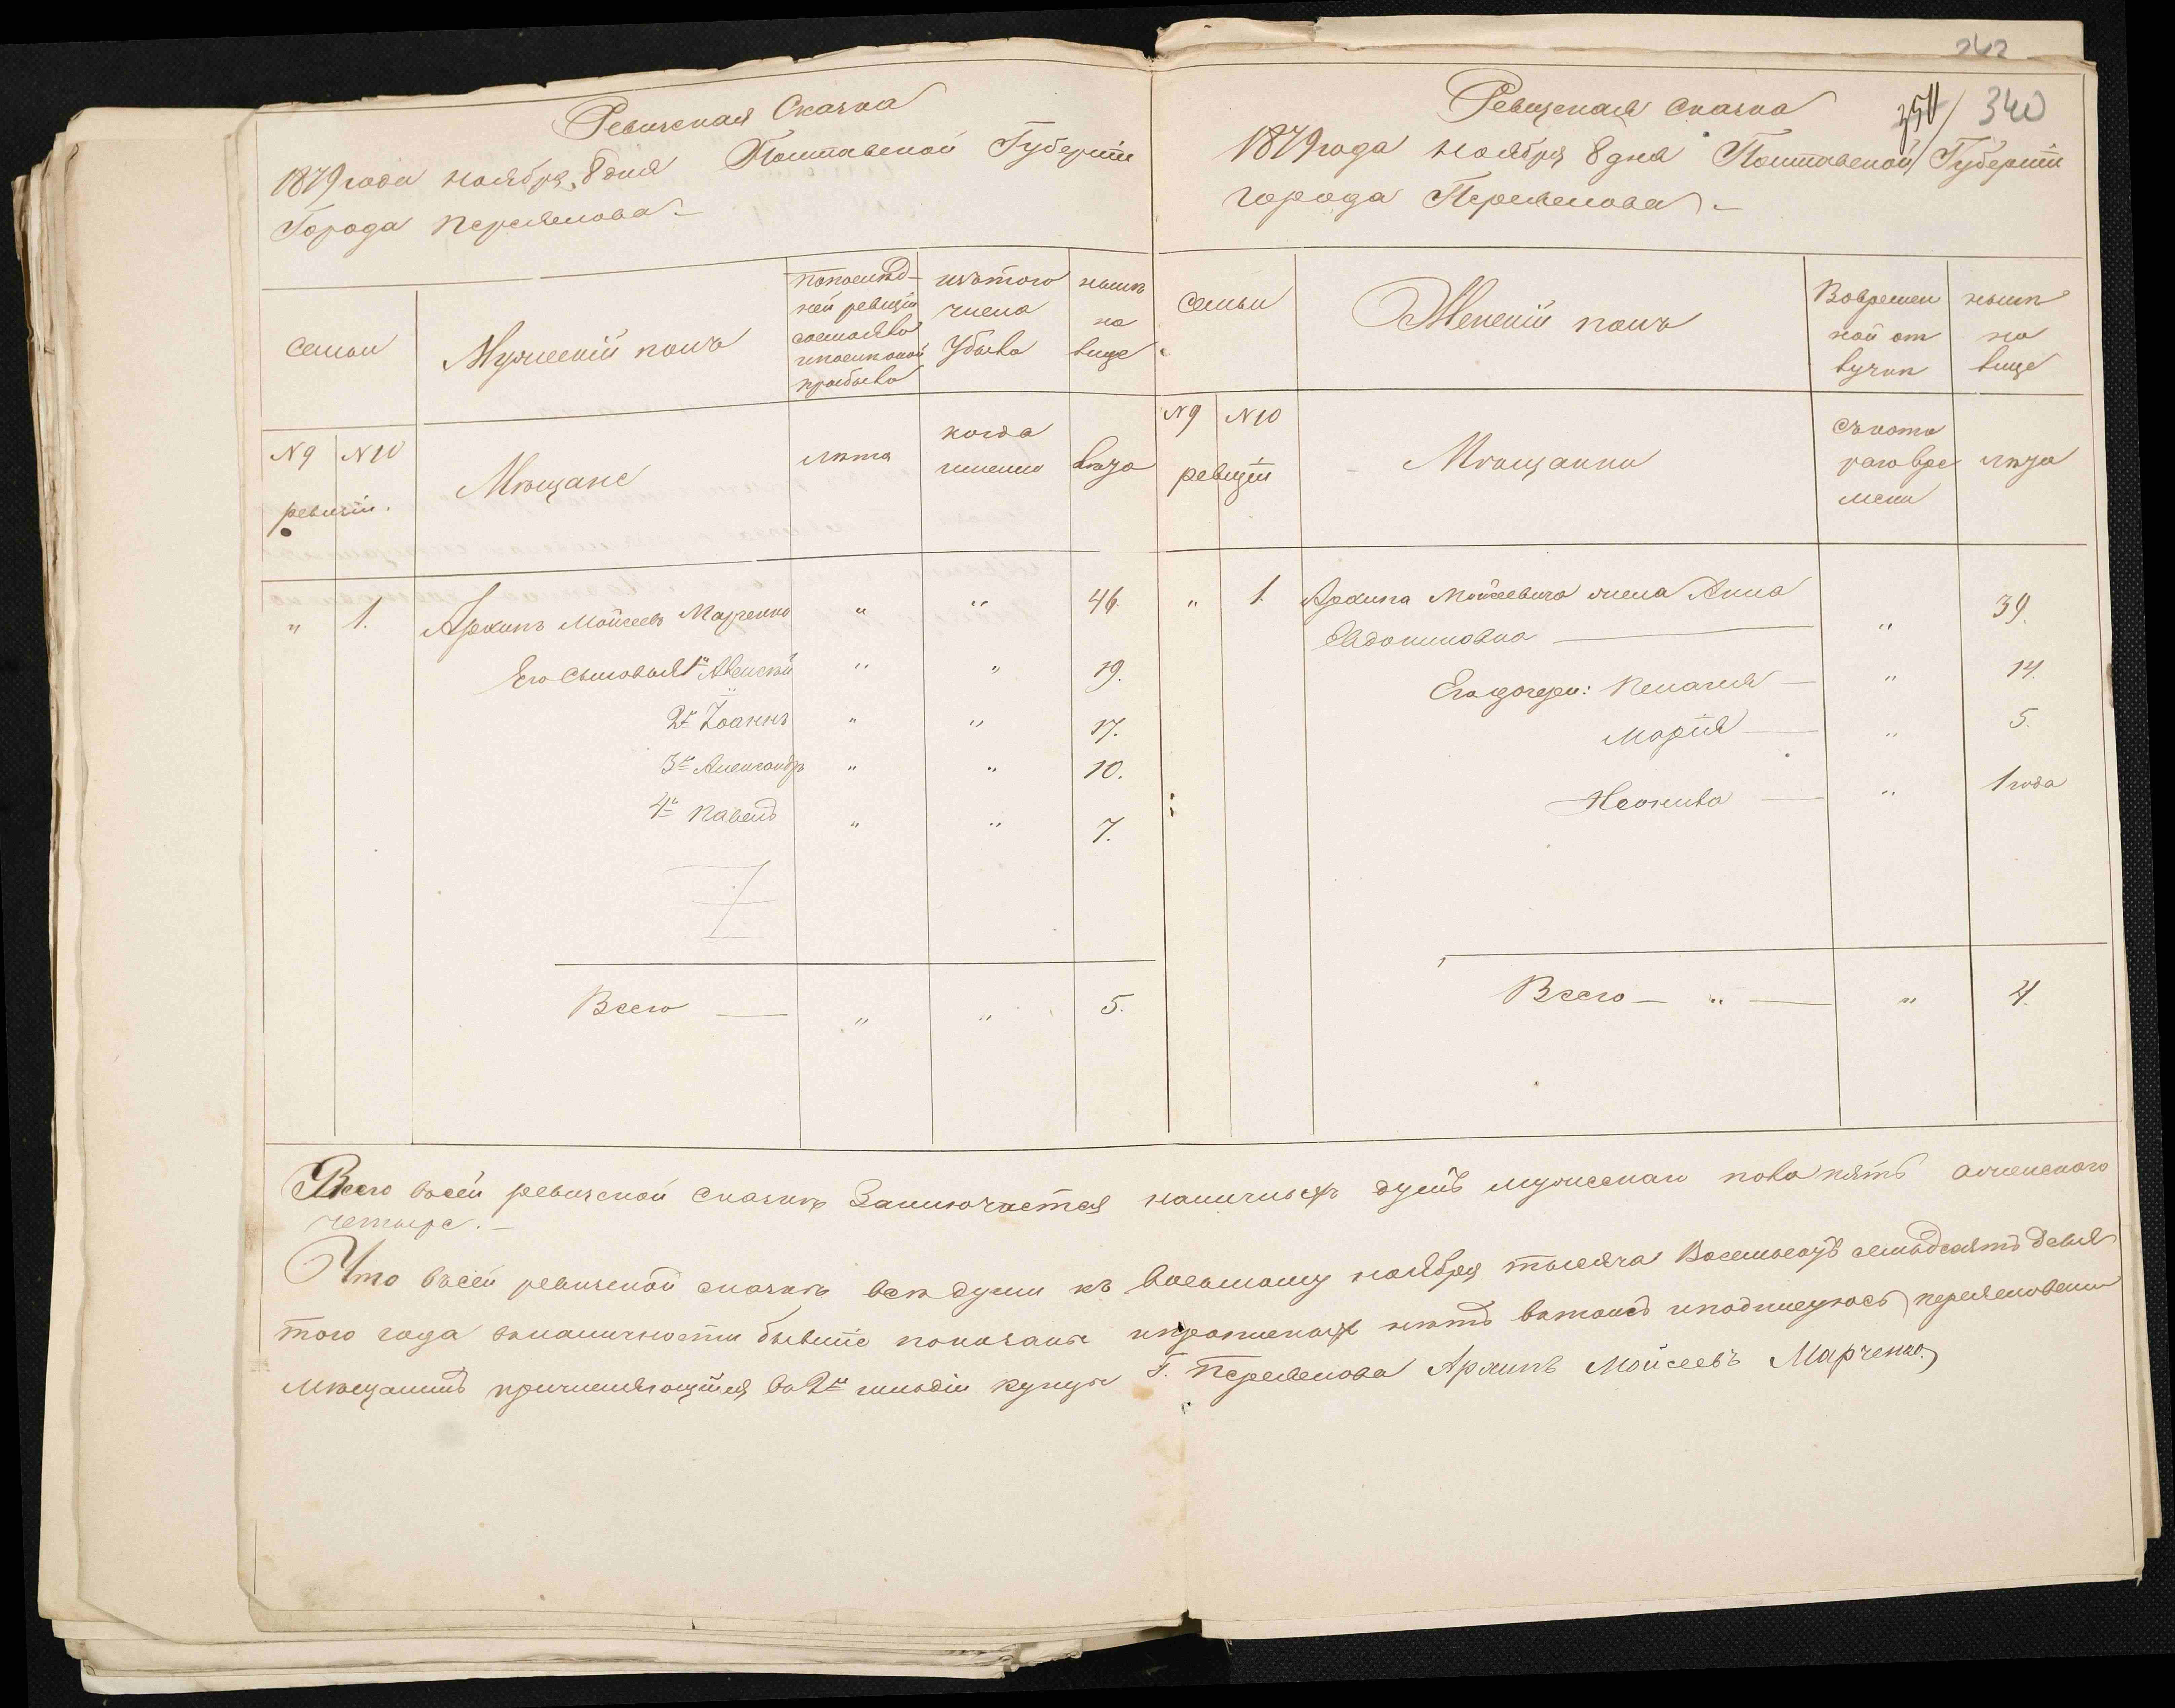 262
350 / 340
Ревизская Сказка
1879 года ноября 8 дня Полтавской Губерніи
Города Переяслова
семьи
Мужескій полъ
по послѣд-
ней ревизіи
состояло
и после оной
прибыло
изъ того
числа
Убыло
нынѣ
на
лице
№ 9 № 10
ревизіи.
Мѣщане
лѣта
когда
именно
лѣта
" 1. Архипъ Мойсеевъ Марченко " " 46.
Его сыновья 1й Алексѣй " " 19.
2й Іоаннъ " " 17.
3й Александръ " " 10.
4й Павелъ " " 7.
Всего — " " 5.
Ревизская сказка
1879 года ноября 8 дня Полтавской Губерніи
города Переяслова
семьи
Женскій полъ
Во времен
ной от
лучкѣ
нынѣ
на
лице
№ 9 № 10
ревизіи
Мѣщанки
съ кото
раго вре
мени
лѣта
" 1. Архипа Мойсеевича жена Анна
Евдокимовна — " 39.
Его дочери: Пелагея — " 14.
Марія — " 5.
Неонила — " 1 года
Всего — " — " 4.
Всего в сей ревизской сказкѣ Заключается наличныхъ душъ мужескаго пола пять а женского
четыре. —
Что в сей ревизской сказкѣ всѣ души къ восьмому ноября тысяча Восемьсотъ семьдесятъ девя
того года в наличности бывшіе показаны и прописныхъ нѣтъ в томъ и подпишуюсь переясловски
мѣщанинъ причисляющійся во 2й гильдіи купцы Г. Переяслова Архипъ Мойсеевъ Марченко